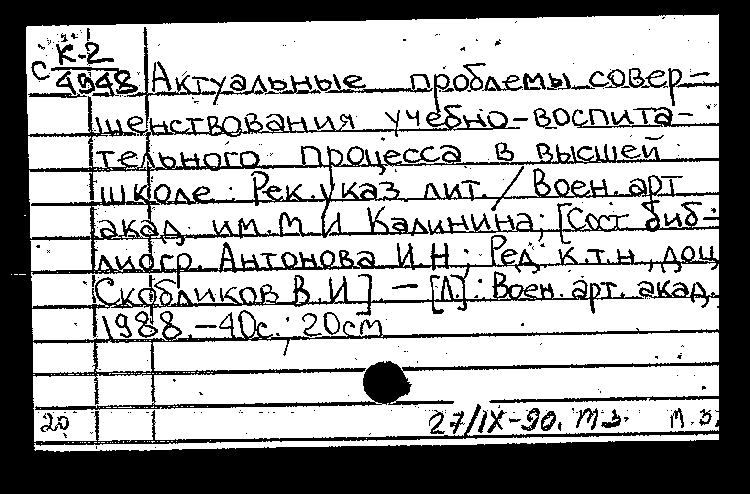 С К-2
4948 Актуальные проблемы совер-
шенствования учебно-воспита-
тельного процесса в высшей
школе : Рек. указ. лит. / Воен. арт.
акад. им. М И Калинина; [Сост. биб-
лиогр. Антонова И.Н ; Ред. к.т.н., доц
Скобликов В.И ]. — [Л.] : Воен. арт. акад.
1988. — 40с. ; 20см
20 27/IX-90. т.з. М.З.